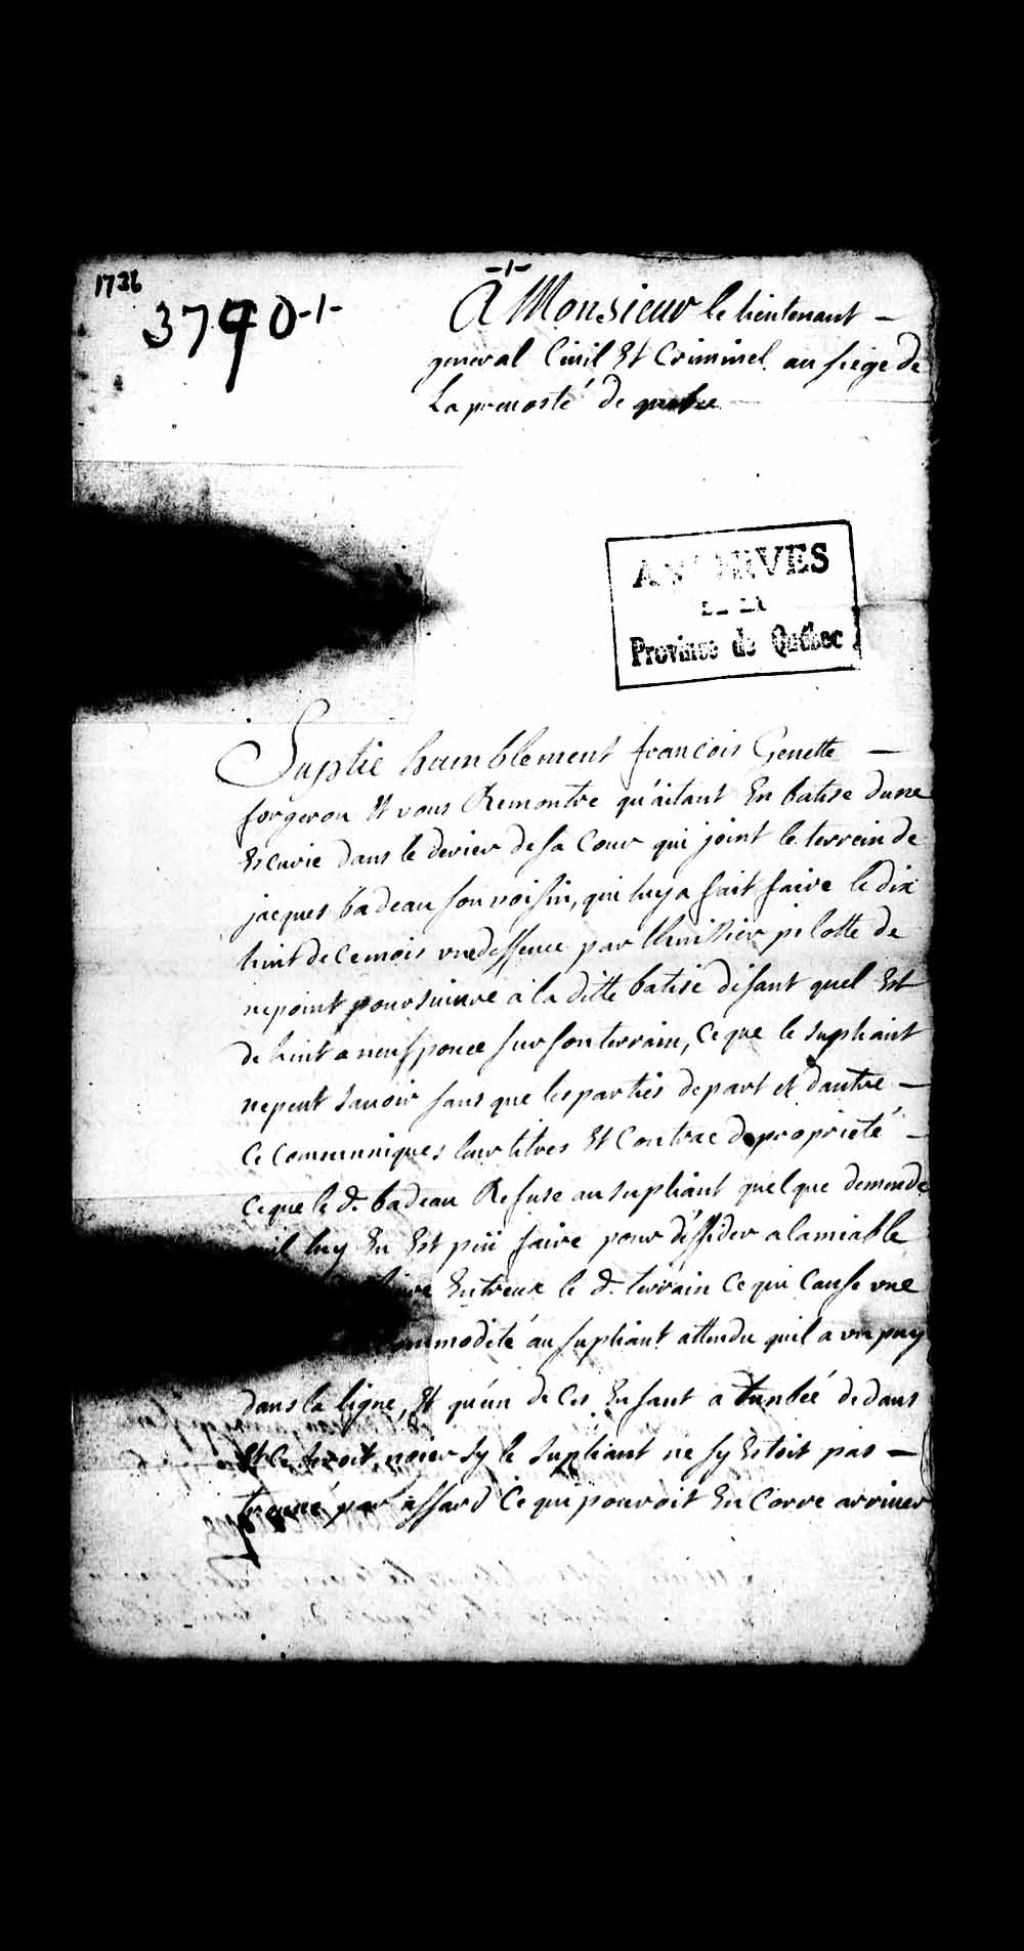 1726
3790-1-
-1-
A Monsieur le lieutenant
general Ciuil Et Criminel au siege de
La preuosté de quebec
ARCHIVES
DE LA
Province de Québec
Suplie humblement francois Genette
forgeron Et vous Remontre qu'aitant En batise dune
Escurie dans le derier de sa Cour qui joint le terrein de
jacques badeau son uoisin, qui luy a fait faire le dix
huit de ce mois vne deffence par lhuissier pilotte de
ne point poursuiure a la ditte batise disant quel Est
de huit a neuf pouce sur son terrain, ce que le supliant
ne peut sauoir sans que les parties de part et dautre
Ce Communiques leur titres Et Contrac de proprieté
Ce que le d. badeau Refuse au supliant quelque demende
luy En Est püi faire pour déssider a lamiable
Entreux le d. terrain Ce qui Cause vne
au supliant attendu quil a vn puy
dans la ligne, Et qu'un de Ces Enfant a tunbéé dedans
Et Ce seroit noier sy le supliant ne sy Estoit pas
trouué par assard Ce qui pouroit En Corre arriuer